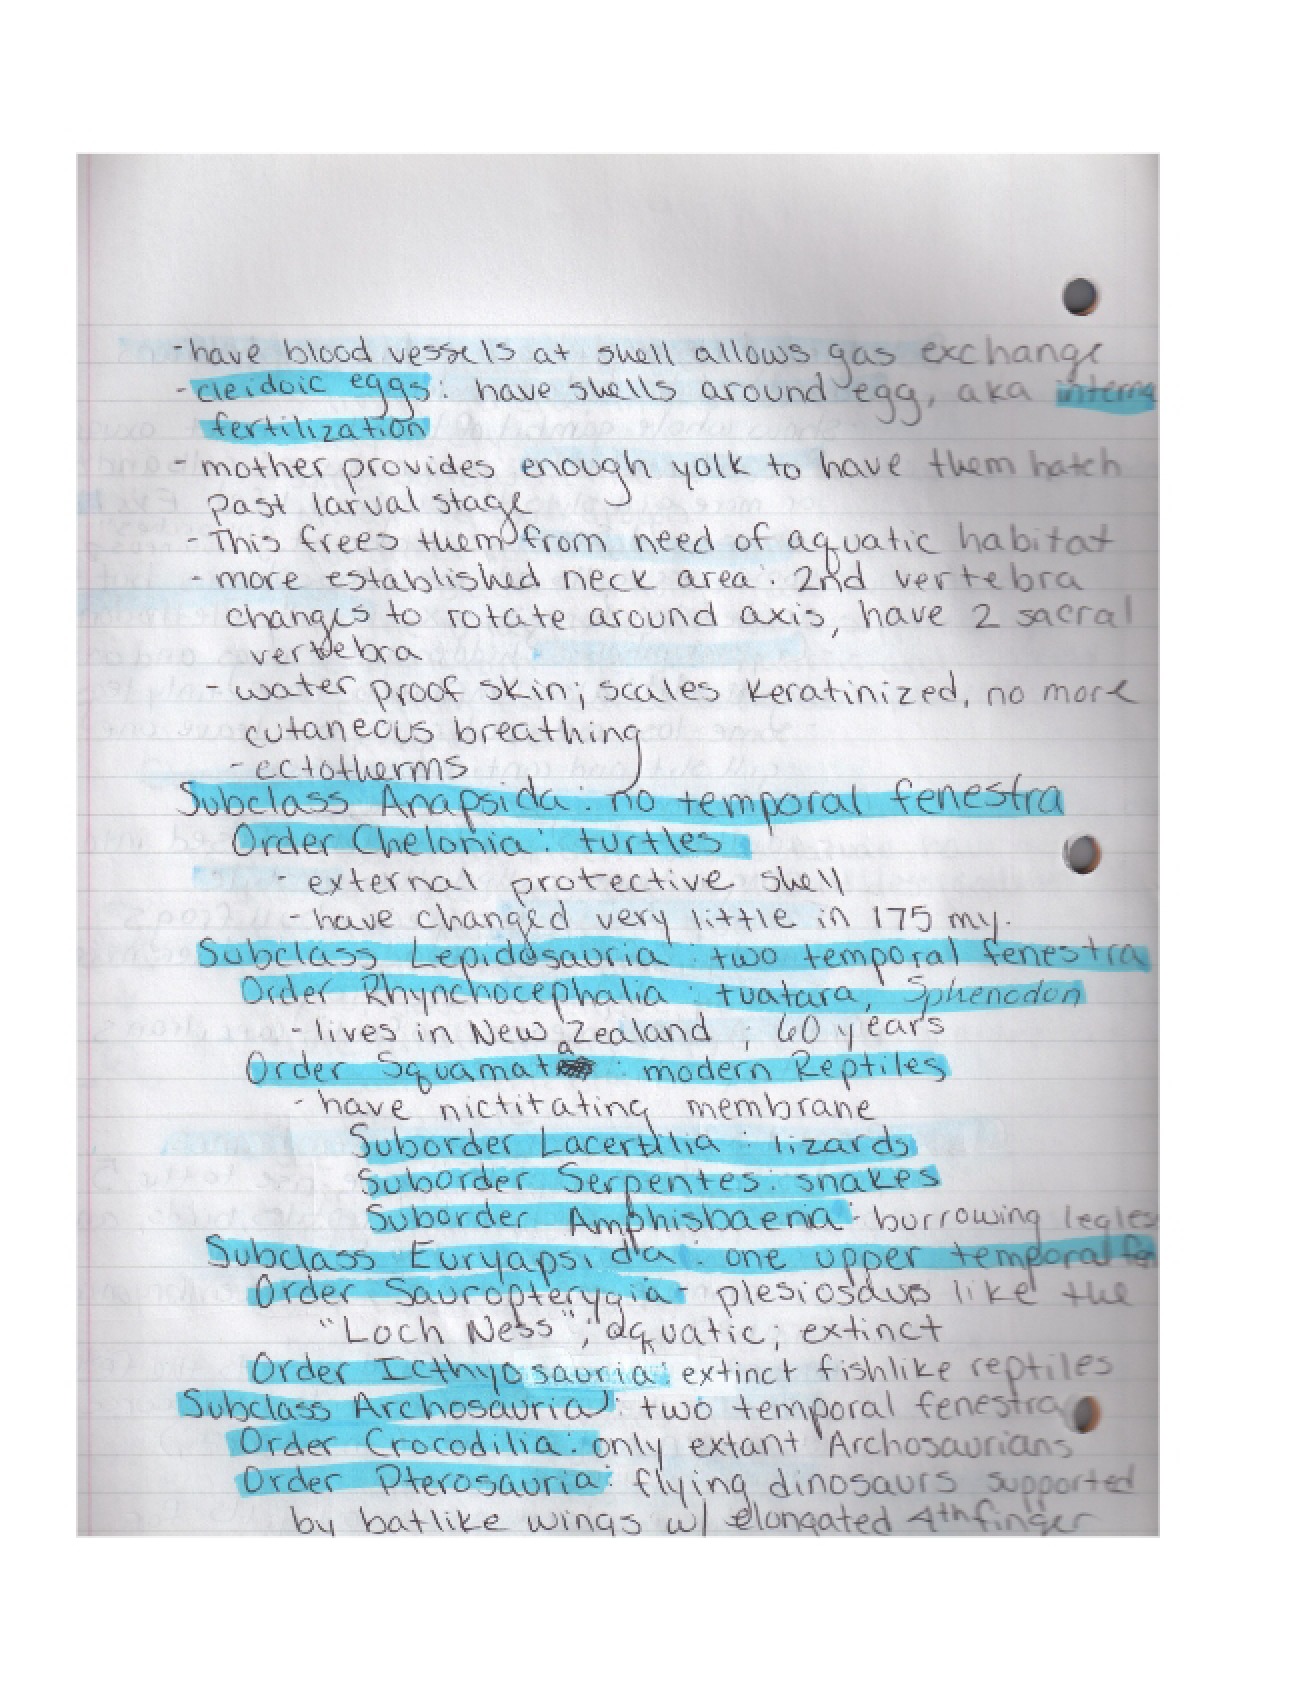 -have blood vessels at shell allows gas exchange
- cleidoic eggs: have shells around egg, aka interna
fertilization
- mother provides enough yolk to have them hatch
past larval stage
- This frees them from need of aquatic habitat
- more established neck area: 2nd vertebra
changes to rotate around axis, have 2 sacral
vertebra
- water proof skin; scales keratinized, no more
cutaneous breathing
- ectotherms
Subclass Anapsida: no temporal fenestra
Order Chelonia: turtles
- external protective shell
- have changed very little in 175 my.
Subclass Lepidosauria: two temporal fenestra
Order Rhynchocephalia: tuatara, Sphenodon
- lives in New Zealand; 60 years
Order Squamata: modern Reptiles
- have nictitating membrane
Suborder Lacertilia: lizards
Suborder Serpentes: snakes
Suborder Amphisbaenia- burrowing legles
Subclass Euryapsida: one upper temporal fen
Order Sauropterygia- plesiosaurs like the
"Loch Ness"; aquatic; extinct
Order Icthyosauria: extinct fishlike reptiles
Subclass Archosauria: two temporal fenestra
Order Crocodilia: only extant Archosaurians
Order Pterosauria: flying dinosaurs supported
by batlike wings w/ elongated 4th finger